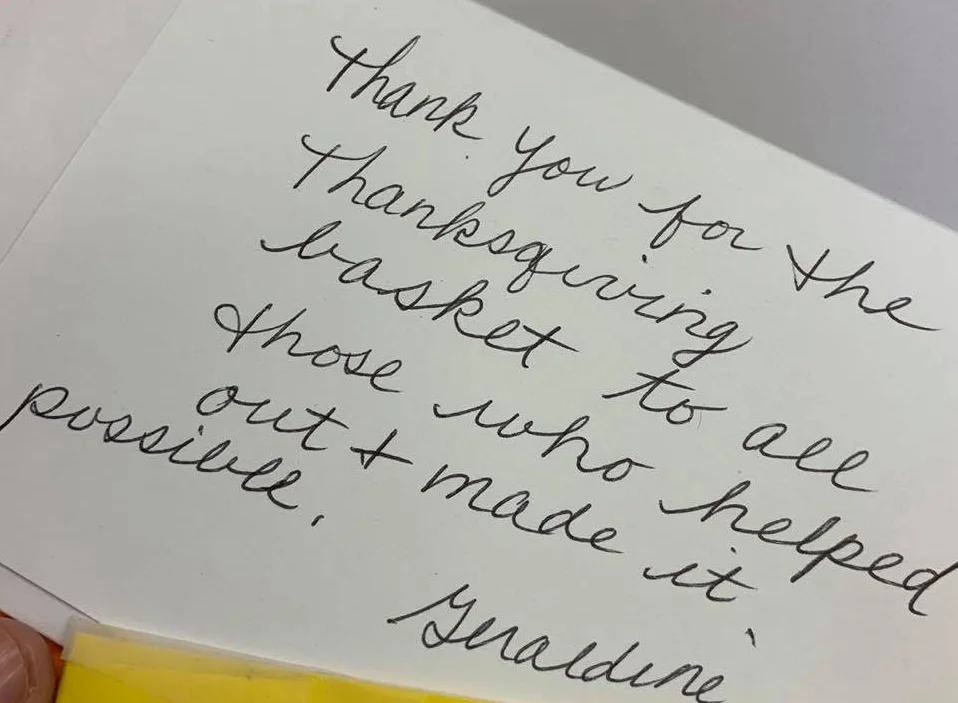 Thank you for the
Thanksgiving
basket to all
those who helped
out + made it
possible.
Geraldine